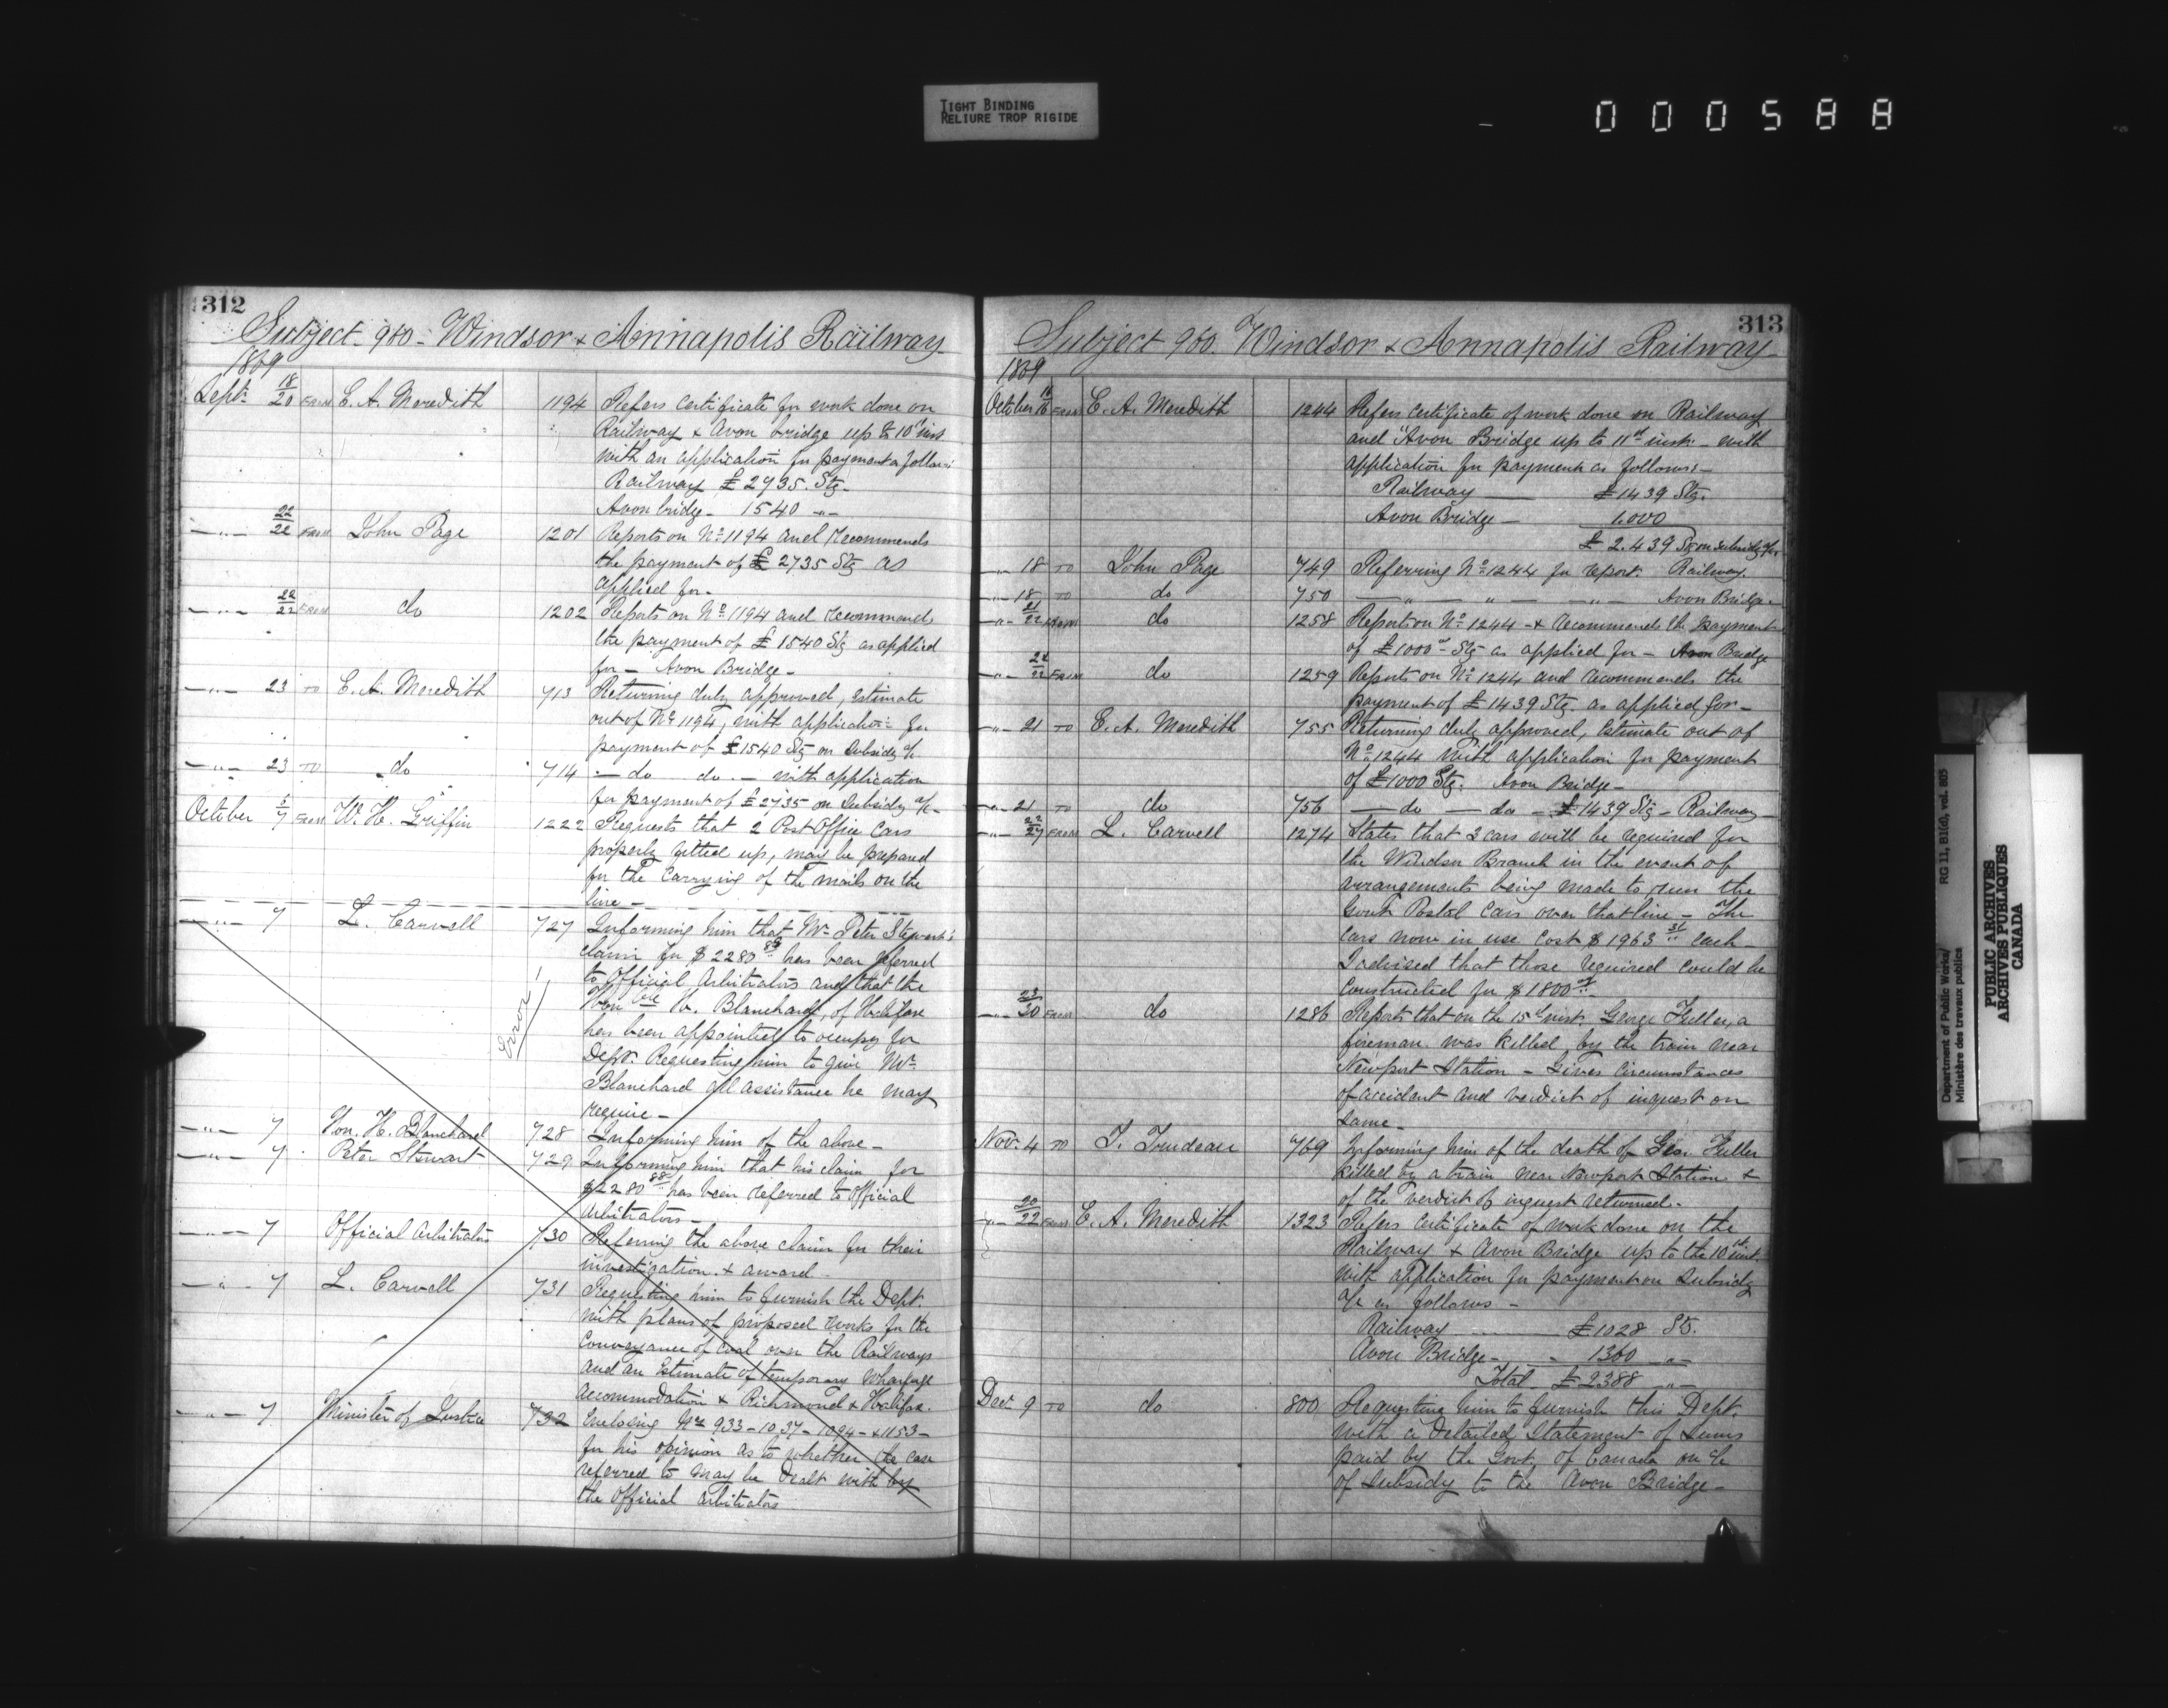 TIGHT BINDING
RELIURE TROP RIGIDE
000588
312
Subject 960 - Windsor & Annapolis Railway
1869
Sept. 18/20 FROM E. A. Meredith 1194 Refers certificate for work done on
Railway & Avon bridge up to 10th inst
with an application for payment as follows:
Railway £2735. Stg.
Avon bridge - 1540 -"-
-"- 22/22 FROM John Page 1201 Reports on No 1194 and recommends
the payment of £2735 Stg as
applied for -
-"- 22/22 FROM do 1202 Reports on No 1194 and recommends
the payment of £1540 Stg as applied
for - Avon Bridge -
-"- 23 TO E. A. Meredith 713 Returning duly approved, Estimate
out of No 1194, with application for
payment of £1540 Stg on Subsidy a/c
-"- 23 TO do 714 - do do - with application
for payment of £2735 on Subsidy a/c -
October 5/7 FROM W. H. Griffin 1222 Requests that 2 Post Office Cars
properly fitted up, may be prepared
for the Carrying of the mails on the
line -
-"- 7 L. Carvell 727 Informing him that Mr Peter Stewart's
claim for $2280 88 has been referred
to Official Arbitrators and that the
Honble H. Blanchard, of Halifax
has been appointed to occupy for
Dept. Requesting him to give Mr
Blanchard all assistance he may
require -
Error!
-"- 7 Hon. H. Blanchard 728 Informing him of the above -
-"- 7 Peter Stewart 729 Informing him that his claim for
$2280 88 has been referred to Official
Arbitrators -
-"- 7 Official Arbitrators 730 Referring the above claim for their
investigation & award -
-"- 7 L. Carvell 731 Requesting him to furnish the Dept.
with plans of proposed works for the
Conveyance of Coal over the Railways
and an Estimate of temporary Wharfage
accommodation & Richmond & Halifax.
-"- 7 Minister of Justice 732 Enclosing Nos 933 - 1037 - 1094 - & 1153 -
for his opinion as to whether the case
referred to may be dealt with by
the Official Arbitrators
313
Subject 960. Windsor & Annapolis Railway
1869
October 16/18 FROM E. A. Meredith 1244 Refers certificate of work done on Railway
and Avon Bridge up to 11th inst. with
application for payment as follows: -
Railway £1439 Stg.
Avon Bridge - 1.000
£2.439 Stg on Subsidy a/c
-"- 18 TO John Page 749 Referring No 1244 for report. Railway.
-"- 18 TO do 750 -"- " -"- Avon Bridge.
-"- 21/22 FROM do 1258 Reports on No 1244 - & recommends the payment
of £1000 Stg as applied for - Avon Bridge
-"- 22/22 FROM do 1259 Reports on No 1244 and recommends the
payment of £1439 Stg. as applied for -
-"- 21 TO E. A. Meredith 755 Returning duly approved, Estimate out of
No 1244 with application for payment
of £1000 Stg. Avon Bridge -
-"- 21 TO do 756 - do - do - £1439 Stg - Railway
-"- 22/27 FROM L. Carvell 1274 States that 2 cars will be required for
the Windsor Branch in the event of
arrangements being made to run the
Govt Postal Cars over that line - The
Cars now in use cost $1963 51 each -
I advised that those required could be
Constructed for $1800
-"- 23/30 FROM do 1286 Reports that on the 15th inst. George Fuller, a
fireman was killed by the train near
Newport Station - Gives Circumstances
of accident and verdict of inquest on
same -
Nov. 4 TO T. Trudeau 769 Informing him of the death of Geo. Fuller
killed by a train near Newport Station &
of the verdict of inquest returned.
-"- 20/22 FROM E. A. Meredith 1323 Refers certificate of work done on the
Railway & Avon Bridge up to the 10th inst.
with application for payment on Subsidy
a/c as follows -
Railway £1028 Stg.
Avon Bridge - 1360 -"-
Total £2388 -"-
Decr 9 TO do 800 Requesting him to furnish this Dept.
with a detailed Statement of Sums
paid by the Govt. of Canada on a/c
of Subsidy to the Avon Bridge -
Department of Public Works/ RG 11, B1(d), vol. 805
Ministère des travaux publics
PUBLIC ARCHIVES
ARCHIVES PUBLIQUES
CANADA